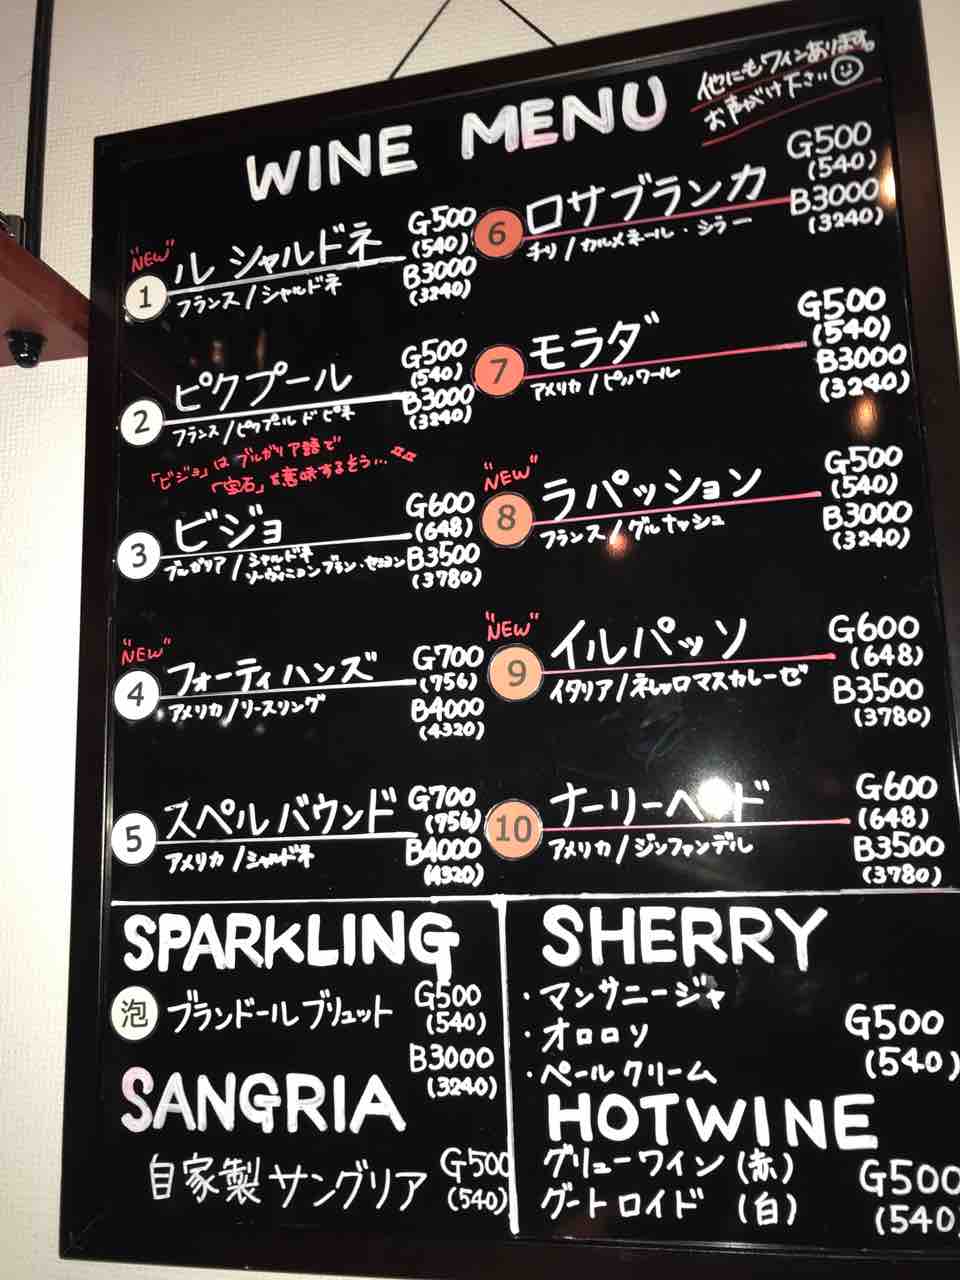 WINE MENU
他にもワインあります。
お声がけ下さい
"NEW"
1 ル シャルドネ G500
(540)
フランス/シャルドネ B3000
(3240)
2 ピクプール G500
(540)
フランス/ピクプール ド ピネ B3000
(3240)
「ビジョ」は ブルガリア語で
「宝石」を意味するそう...
3 ビジョ G600
(648)
ブルガリア/シャルドネ B3500
ソーヴィニョンブラン・セミヨン
(3780)
"NEW"
4 フォーティ ハンズ G700
(756)
アメリカ/リースリング B4000
(4320)
5 スペルバウンド G700
(756)
アメリカ/シャルドネ B4000
(4320)
6 ロサブランカ G500
(540)
チリ/カルメネール・シラー B3000
(3240)
7 モラダ G500
(540)
アメリカ/ピノノワール B3000
(3240)
"NEW"
8 ラパッション G500
(540)
フランス/グルナッシュ B3000
(3240)
"NEW"
9 イルパッソ G600
(648)
イタリア/ネレッロマスカレーゼ B3500
(3780)
10 ナーリーヘッド G600
(648)
アメリカ/ジンファンデル B3500
(3780)
SPARKLING
泡 ブランドールブリュット G500
(540)
B3000
(3240)
SANGRIA
自家製サングリア G500
(540)
SHERRY
・マンサニージャ
・オロロソ G500
・ペールクリーム (540)
HOTWINE
グリューワイン(赤) G500
グートロイド (白) (540)